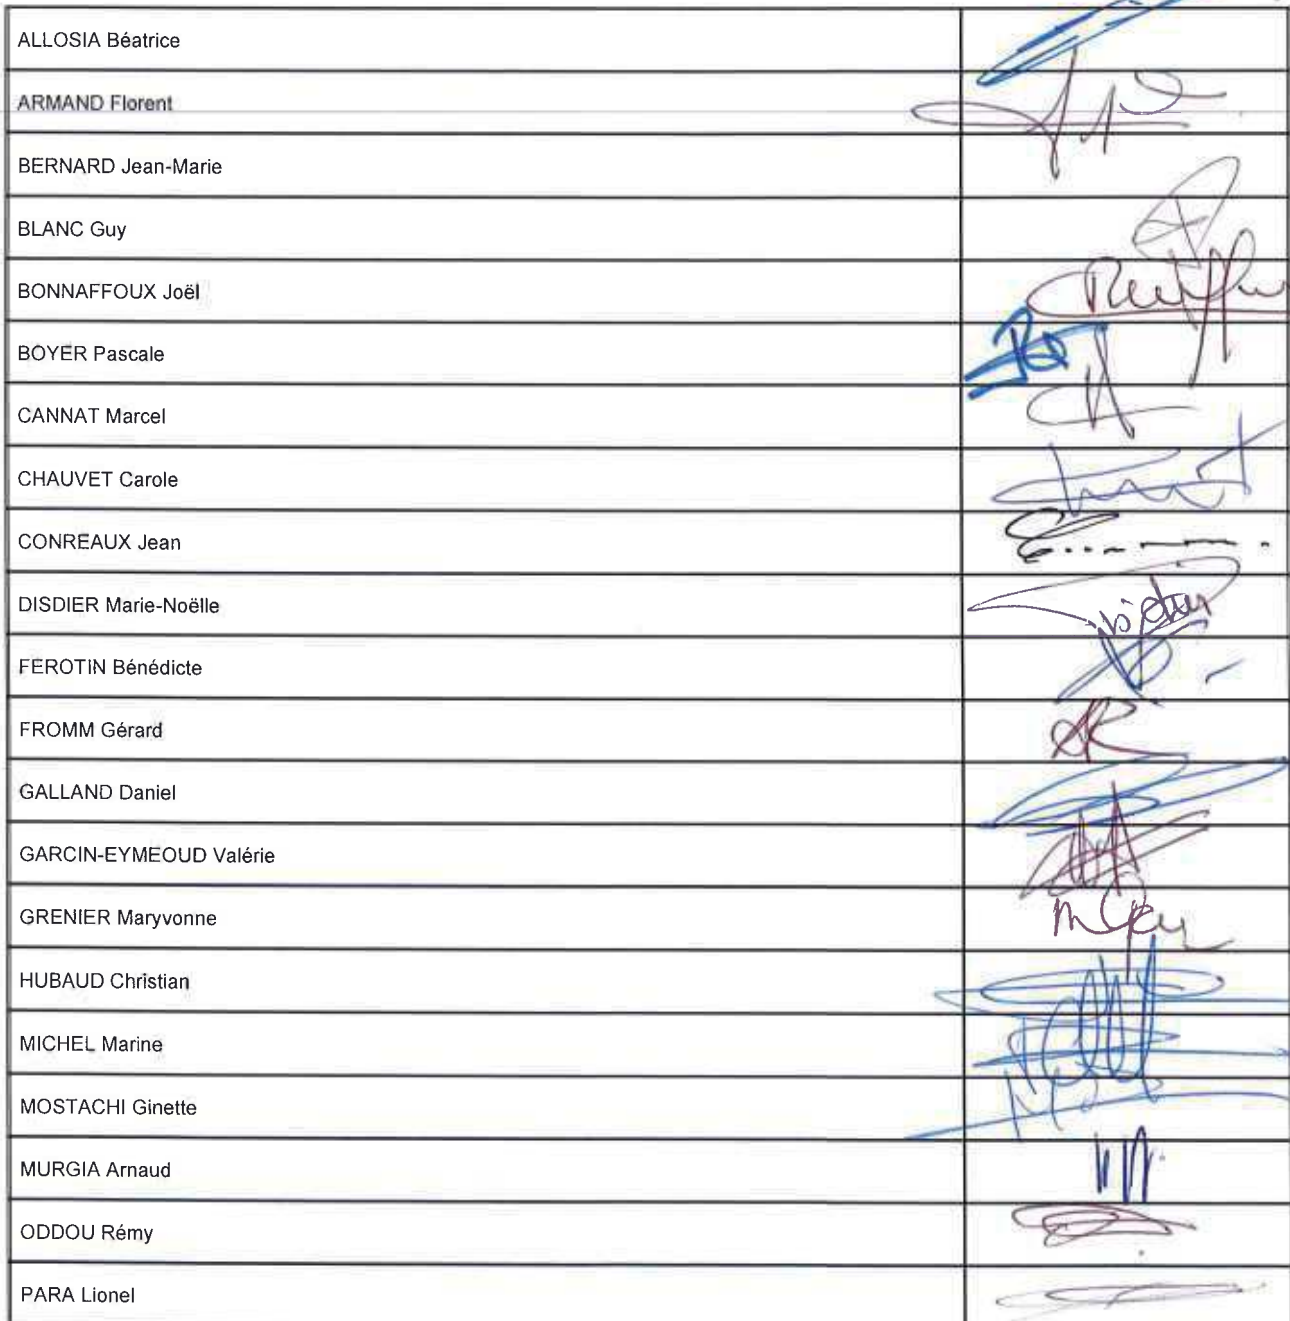 ALLOSIA Béatrice
ARMAND Florent
BERNARD Jean-Marie
BLANC Guy
BONNAFFOUX Joël
BOYER Pascale
CANNAT Marcel
CHAUVET Carole
CONREAUX Jean
DISDIER Marie-Noëlle
FEROTIN Bénédicte
FROMM Gérard
GALLAND Daniel
GARCIN-EYMEOUD Valérie
GRENIER Maryvonne
HUBAUD Christian
MICHEL Marine
MOSTACHI Ginette
MURGIA Arnaud
ODDOU Rémy
PARA Lionel